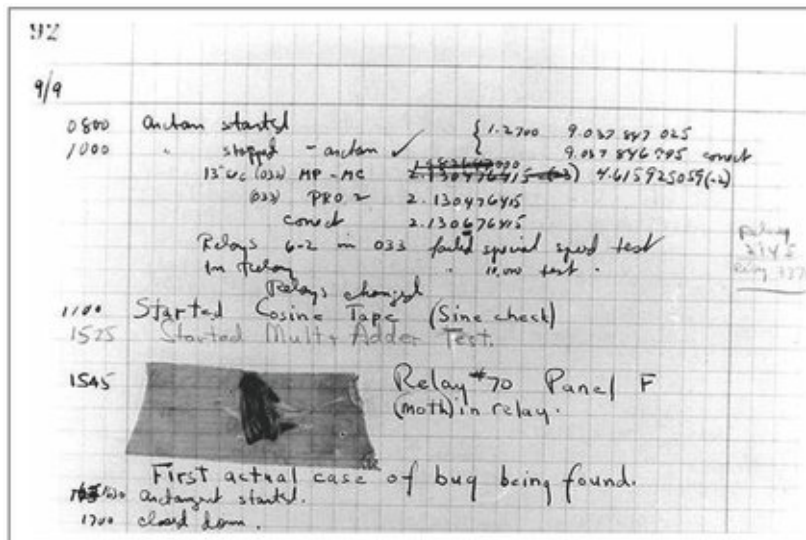 92
9/9
0800 Antan started { 1.2700 9.037 847 025
1000 " stopped - antan ✓ 9.037 846 795 conect
13" uc (032) MP - MC 2.130476415 4.615925059(-2)
(033) PRO 2 2.130476415
conect 2.130676415
Relays 6-2 in 033 failed special speed test
in relay " 10,000 test .
Relays changed
1100 Started Cosine Tape (Sine check)
1525 Started Mult + Adder Test.
1545 Relay #70 Panel F
(moth) in relay.
First actual case of bug being found.
1630 Antangent started.
1700 closed down .
Relay
Relay